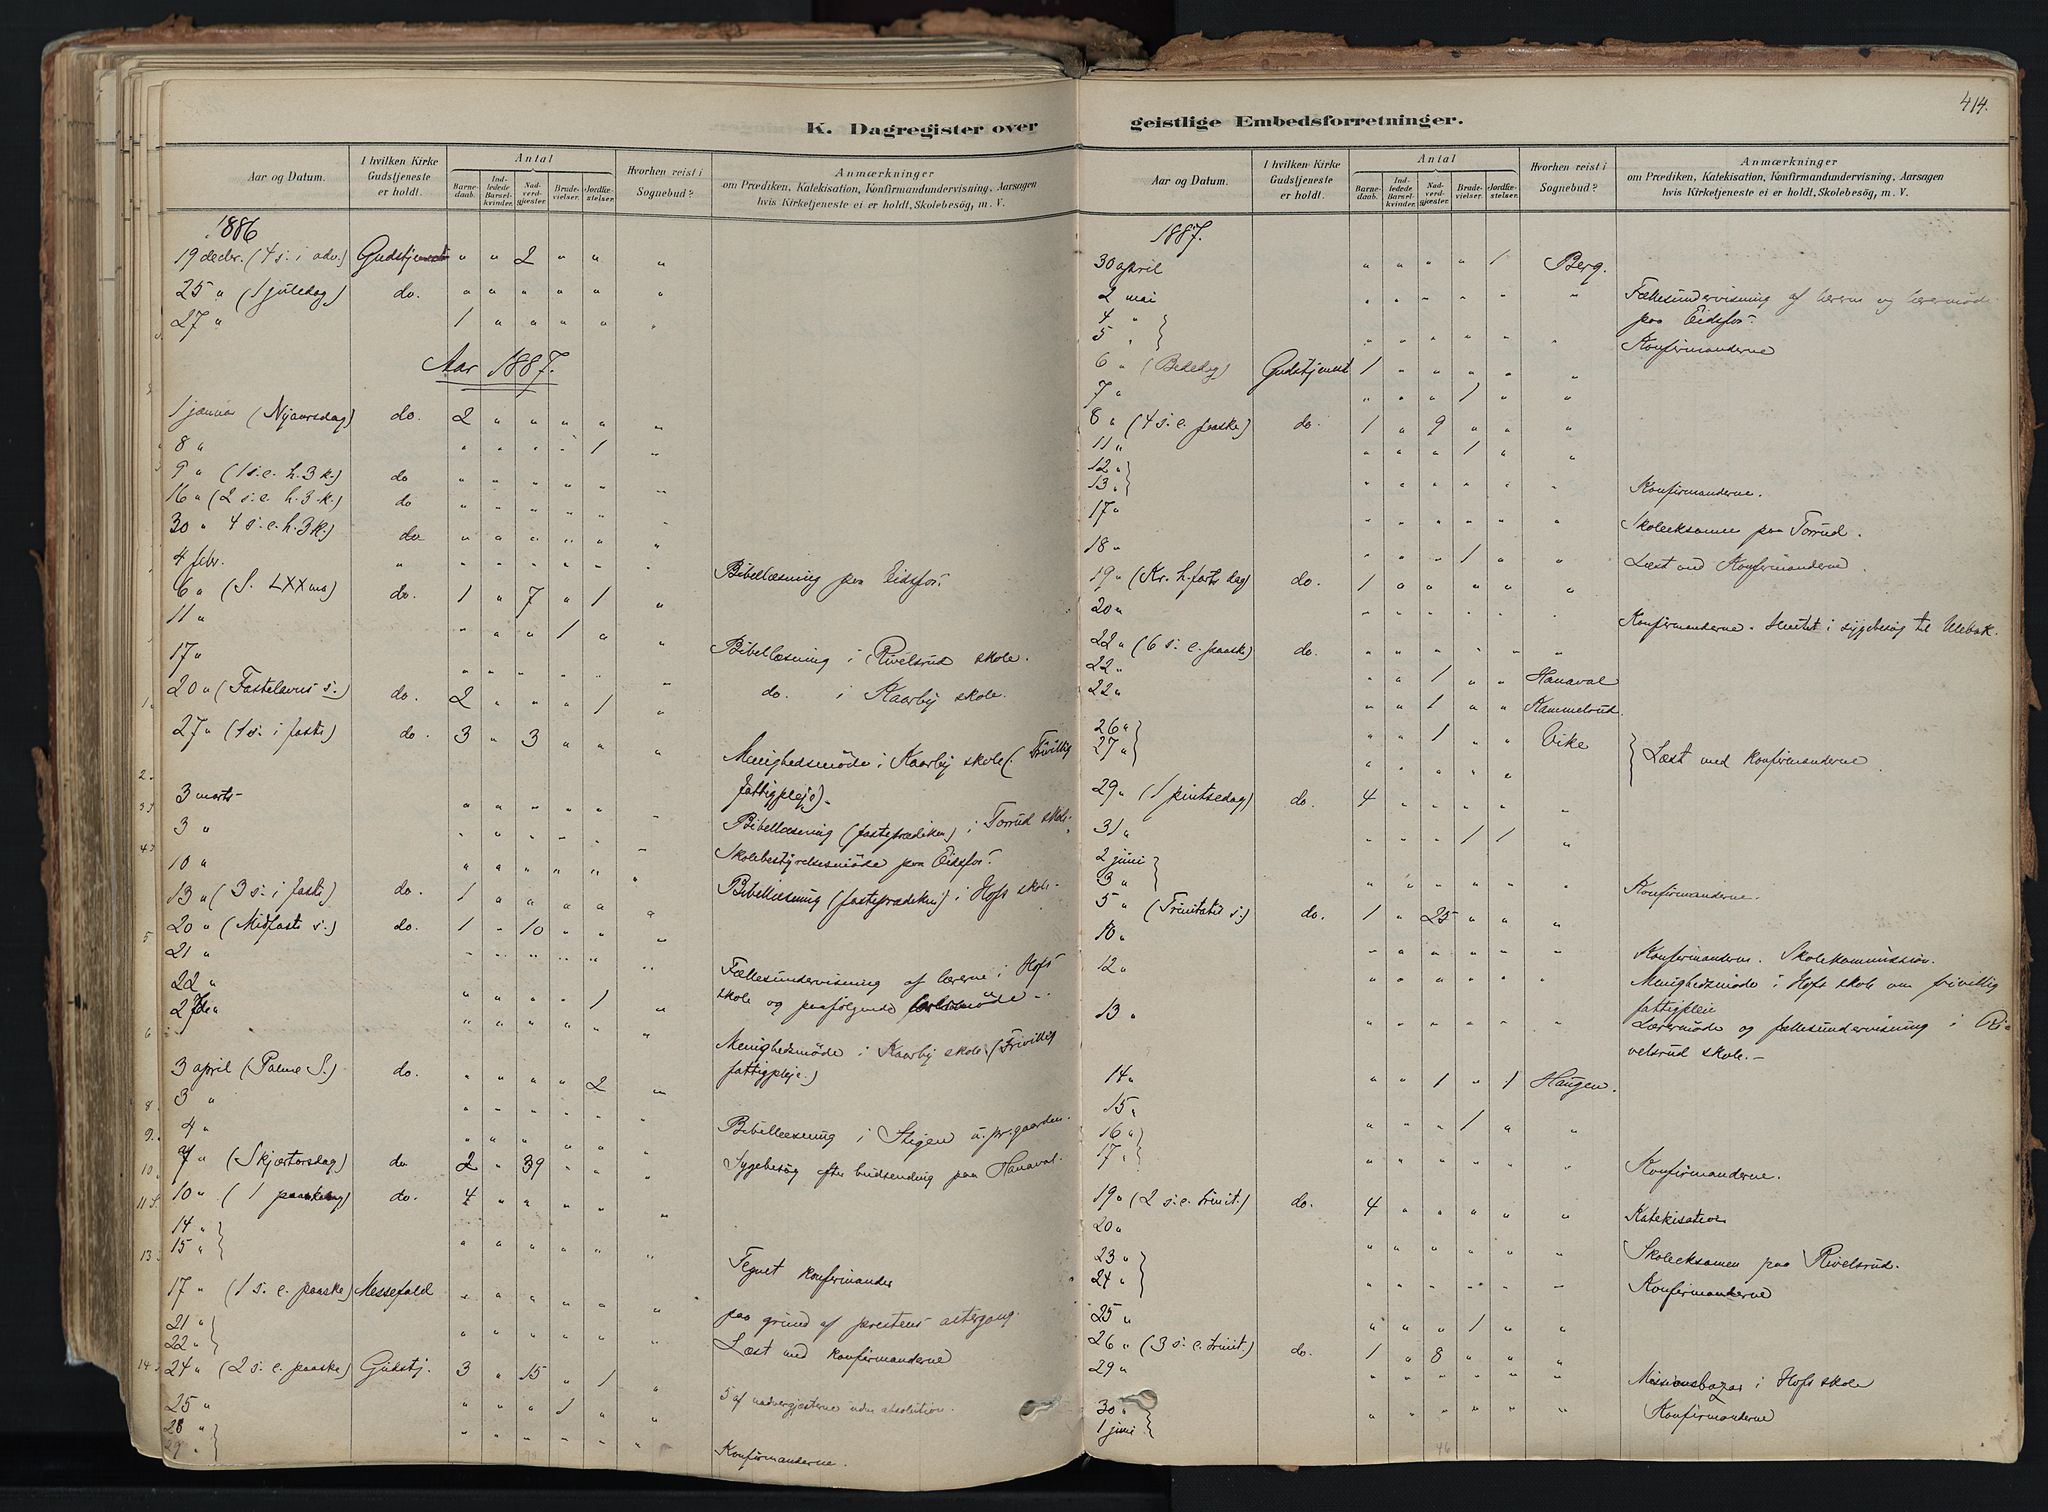 414.
K. Dagregister over geistlige Embedsforretninger.
Aar og Datum. I hvilken Kirke Gudstjeneste er holdt. Antal Barnedaab. Indledede Barselkvinder. Nadverdgjæster. Brudevielser. Jordfæstelser. Hvorhen reist i Sognebud? Anmærkninger om Prædiken, Katekisation, Konfirmandundervisning, Aarsagen hvis Kirketjeneste ei er holdt, Skolebesøg, m. V.
1886
19 decbr. (4 s. i adv.) Gudstjeneste " " 2 " " "
25 " (1 juledag) do. " " " " " "
27 " 1 " " " " "
Aar 1887.
1 januar (Nyaarsdag) do. 2 " " " " "
8 " " " " " 1 "
9 " (1 s. e. h. 3 k.) do " " " " " "
16 " (2 s. e. h. 3 k.) do " " " " " "
30 " 4 s. e. h. 3 k.) do " " " " " "
4 febr. " " " " " " Bibellæsning paa Eidsfos.
6 " (S. LXXms) do. 1 " 7 " 1 "
11 " " " " 1 " "
17 " " " " " " " Bibellæsning i Rivelsrud skole.
20 " (Fastelavns s.) do. 2 " " " 1 " do. i Kaarby skole.
27 " (1 s. i faste) do. 3 " 3 " " "
Menighedsmøde i Kaarby skole (Frivillig
3 marts " " " " " " fattigpleje).
3 " " " " " " " Bibellæsning (fasteprædiken) i Torrud skole.
10 " " " " " " " Skolebestyrelsesmøde paa Eidsfos.
13 " (3 s. i faste) do. 1 " " " " " Bibellæsning (fasteprædiken) i Hofs skole.
20 " (Midfaste s.) do. 1 " 10 " " "
21 " " " " " " " Fællesundervisning af lærerne i Hofs
22 " " " " " 1 " skole og paafølgende lærermøde.
27 " " " " " " " Menighedsmøde i Kaarby skole (Frivillig
3 april (Palme S.) do. " " " " 2 " fattigpleje.)
3 " " " " " " "
4 " " " " " " " Bibellæsning i Stigen u. pr.gaarden.
7 " (Skjærtorsdag) do 2 " 39 " " " Sygebesøg efter budsending paa Hanaval.
10 " (1 paaskedag) do. 4 " " " " "
14 " }
15 " } " " " " " " Tegnet konfirmander
17 " (1 s. e. paaske) Messefald " " " " " " paa grund af prestens
21 " }
22 " } " " " " " " Læst med konfirmanderne
24 " (2 s. e. paaske) Gudstj. 3 " 15 " 1 " 5 af nadvergjæsterne uden absolution.
25 " " " " 1 " "
28 " }
29 " } " " " " " " Konfirmanderne.
Aar og Datum. I hvilken Kirke Gudstjeneste er holdt. Antal Barnedaab. Indledede Barselkvinder. Nadverdgjæster. Brudevielser. Jordfæstelser. Hvorhen reist i Sognebud? Anmærkninger om Prædiken, Katekisation, Konfirmandundervisning, Aarsagen hvis Kirketjeneste ei er holdt, Skolebesøg, m. V.
1887.
30 april " " " " 1 Berg.
2 mai " " " " " " Fællesundervisning af lærerne og lærermøde
4 " } paa Eidsfos.
5 " } " " " " " " Konfirmanderne
6 " (Bededag) Gudstjeneste 1 " " " " "
7 " " " " 1 " "
8 " (4 s. e. paaske) do. 1 " 9 " " "
11 " " " " 1 " "
12 " }
13 " } " " " " " " Konfirmanderne.
17 " " " " " " " Skoleeksamen paa Torrud.
18 " " " " 1 " " Læst med Konfirmanderne.
19 " (Kr. h.farts dag) do. 1 " " " " "
20 " " " " " " " Konfirmanderne. Hentet i sygebesøg til Ulebak.
22 " (6 s. e. paaske) do. " " " " " "
22 " " " 1 " " Hanaval
22 " " " 1 " " Kammelsrud.
26 " } " " 1 " " Vike
27 " } " " " " " } Læst med konfirmanderne.
29 " (1 pintsedag) do. 4 " " " " "
31 " " " " 1 1 "
2 juni }
3 " } " " " " " " Konfirmanderne.
5 " (Trinitatis s.) do. 1 " 25 " " "
10 " " " " " " " Konfirmanderne. Skolekommission.
12 " " " " " " " Menighedsmøde i Hofs skole om frivillig
fattigpleje
13 " " " " " " " Lærermøde og fællesundervisning i Ri-
velsrud skole.
14 " " " 1 " 1 Haugen.
15 " " " " 1 " "
16 " }
17 " } " " " " " " Konfirmanderne.
19 " (2 s. e. trinit.) do. 4 " " " " " Katekisation
20 " " " " " " " Skoleeksamen paa Rivelsrud.
23 " }
24 " } " " " " " " Konfirmanderne
25 " " " " 1 " "
26 " (3 s. e. trinit.) do. 1 " 8 " " "
29 " " " " " " " Missionsbazar i Hofs skole
30 " }
1 juni } " " " " " " Konfirmanderne
46